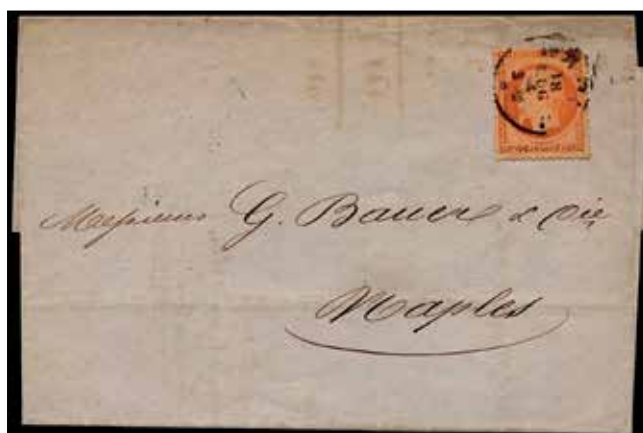 18
Messieurs G. Bauer & Cie
Naples